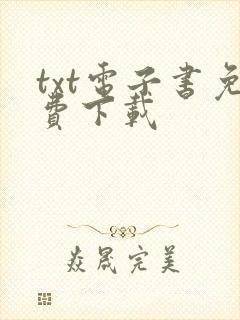 txt电子書免
費下載
焱晟完美